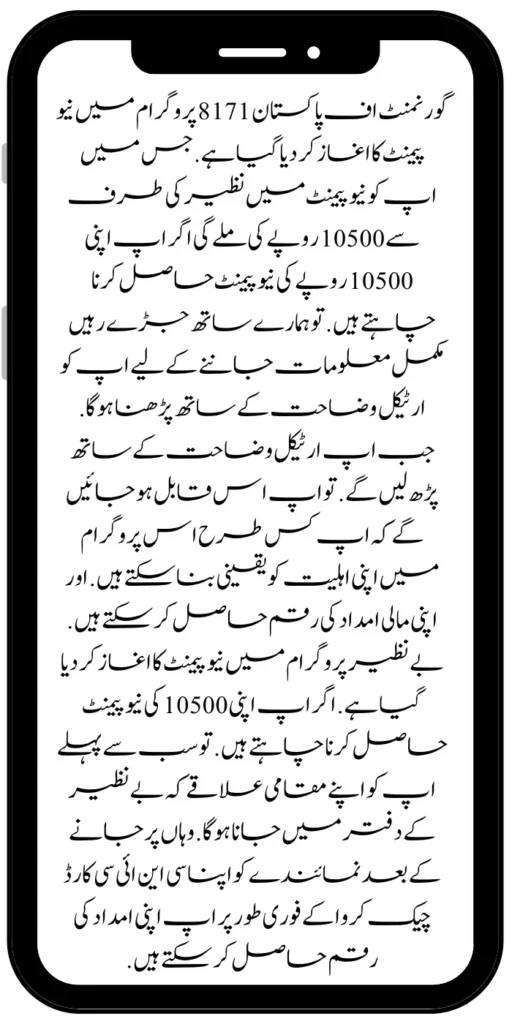 گورنمنٹ اف پاکستان 8171 پروگرام میں نیو
پیمنٹ کا اغاز کر دیا گیا ہے. جس میں
اپ کو نیو پیمنٹ میں نظیر کی طرف
سے 10500 روپے کی ملے گی اگر اپ اپنی
10500 روپے کی نیو پیمنٹ حاصل کرنا
چاہتے ہیں. تو ہمارے ساتھ جڑے رہیں
مکمل معلومات جاننے کے لیے اپ کو
ارٹیکل وضاحت کے ساتھ پڑھنا ہوگا.
جب اپ ارٹیکل وضاحت کے ساتھ
پڑھ لیں گے. تو اپ اس قابل ہو جائیں
گے کہ اپ کس طرح اس پروگرام
میں اپنی اہلیت کو یقینی بنا سکتے ہیں. اور
اپنی مالی امداد کی رقم حاصل کر سکتے ہیں.
بے نظیر پروگرام میں نیو پیمنٹ کا اغاز کر دیا
گیا ہے. اگر اپ اپنی 10500 کی نیو پیمنٹ
حاصل کرنا چاہتے ہیں. تو سب سے پہلے
اپ کو اپنے مقامی علاقے کہ بے نظیر
کے دفتر میں جانا ہوگا. وہاں پر جانے
کے بعد نمائندے کو اپنا سی این ائی سی کارڈ
چیک کروا کے فوری طور پر اپ اپنی امداد کی
رقم حاصل کر سکتے ہیں.